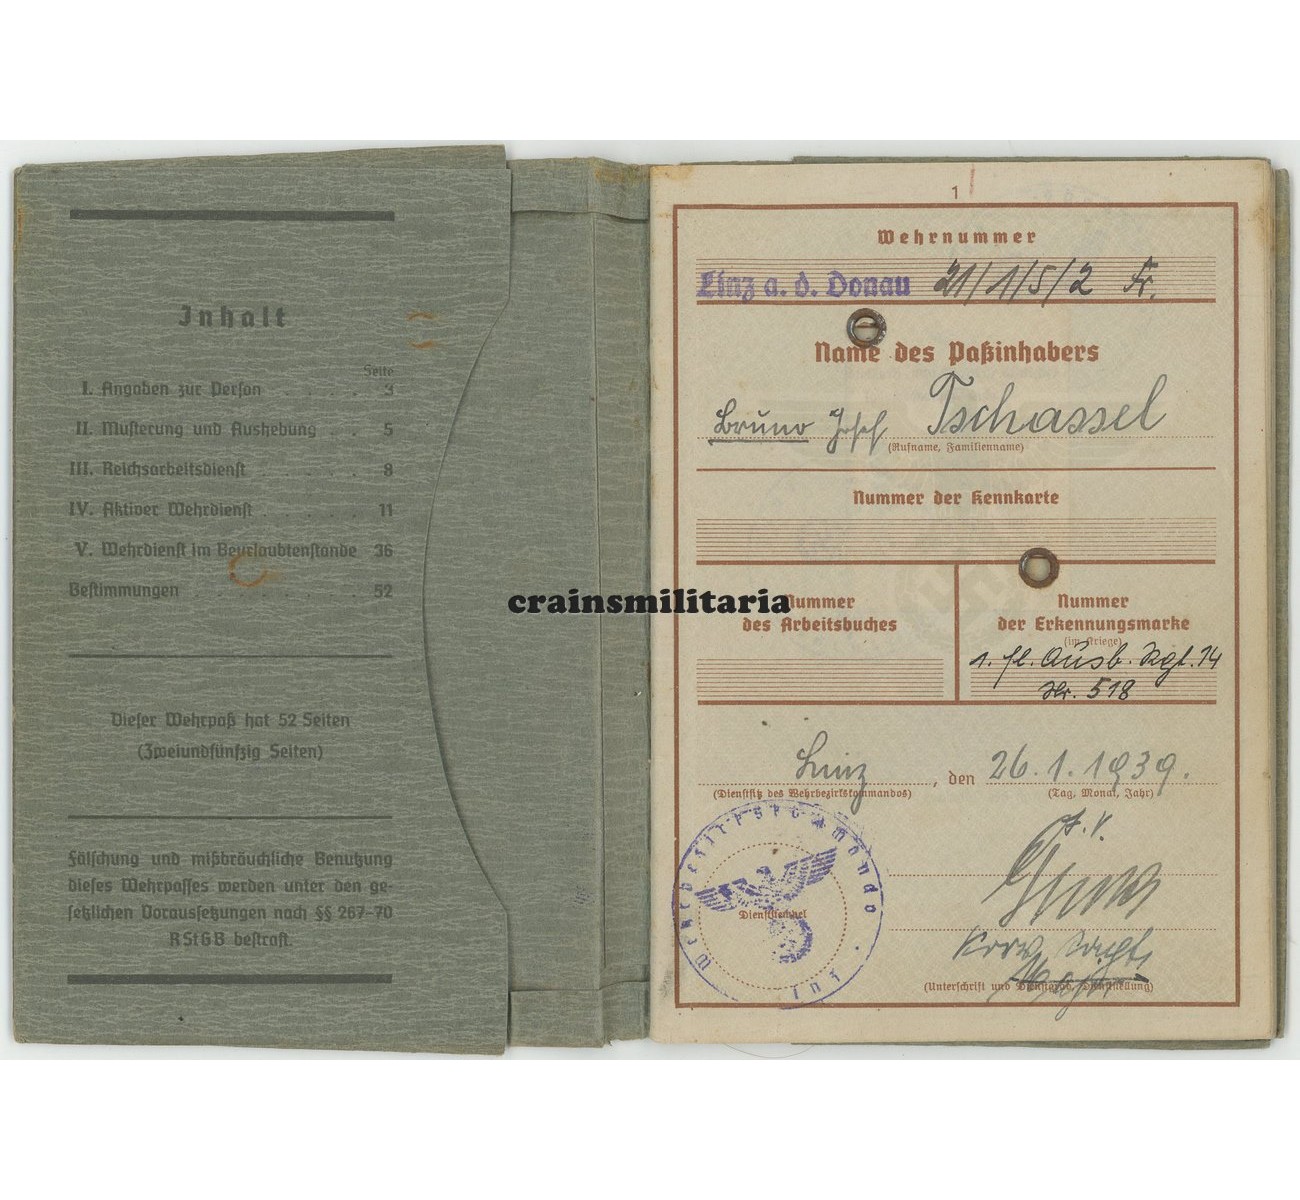 Inhalt
Seite
I. Angaben zur Person . . . . . 3
II. Musterung und Aushebung . . . 5
III. Reichsarbeitsdienst . . . . . . 8
IV. Aktiver Wehrdienst . . . . . . 11
V. Wehrdienst im Beurlaubtenstande 36
Bestimmungen . . . . . . . . . 52
Dieser Wehrpaß hat 52 Seiten
(Zweiundfünfzig Seiten)
Fälschung und mißbräuchliche Benutzung
dieses Wehrpasses werden unter den ge-
setzlichen Voraussetzungen nach §§ 267-70
RStGB bestraft.
crainsmilitaria
1
Wehrnummer
Linz a. d. Donau 21/1/5/2 Fr.
Name des Paßinhabers
Bruno Josef Tschassel
(Rufname, Familienname)
Nummer der Kennkarte
Nummer
des Arbeitsbuches
Nummer
der Erkennungsmarke
(im Kriege)
1. fl. Ausb. Rgt. 14
Nr. 518
Linz, den 26.1.1939.
(Dienstsitz des Wehrbezirkskommandos) (Tag, Monat, Jahr)
J.V.
Wehrbezirkskommando
Linz
Dienststempel
(Unterschrift und Dienstgrad, Dienststellung)